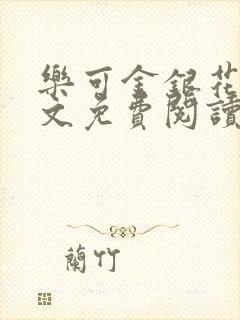 樂可金銀花
文免費閱讀
蘭竹